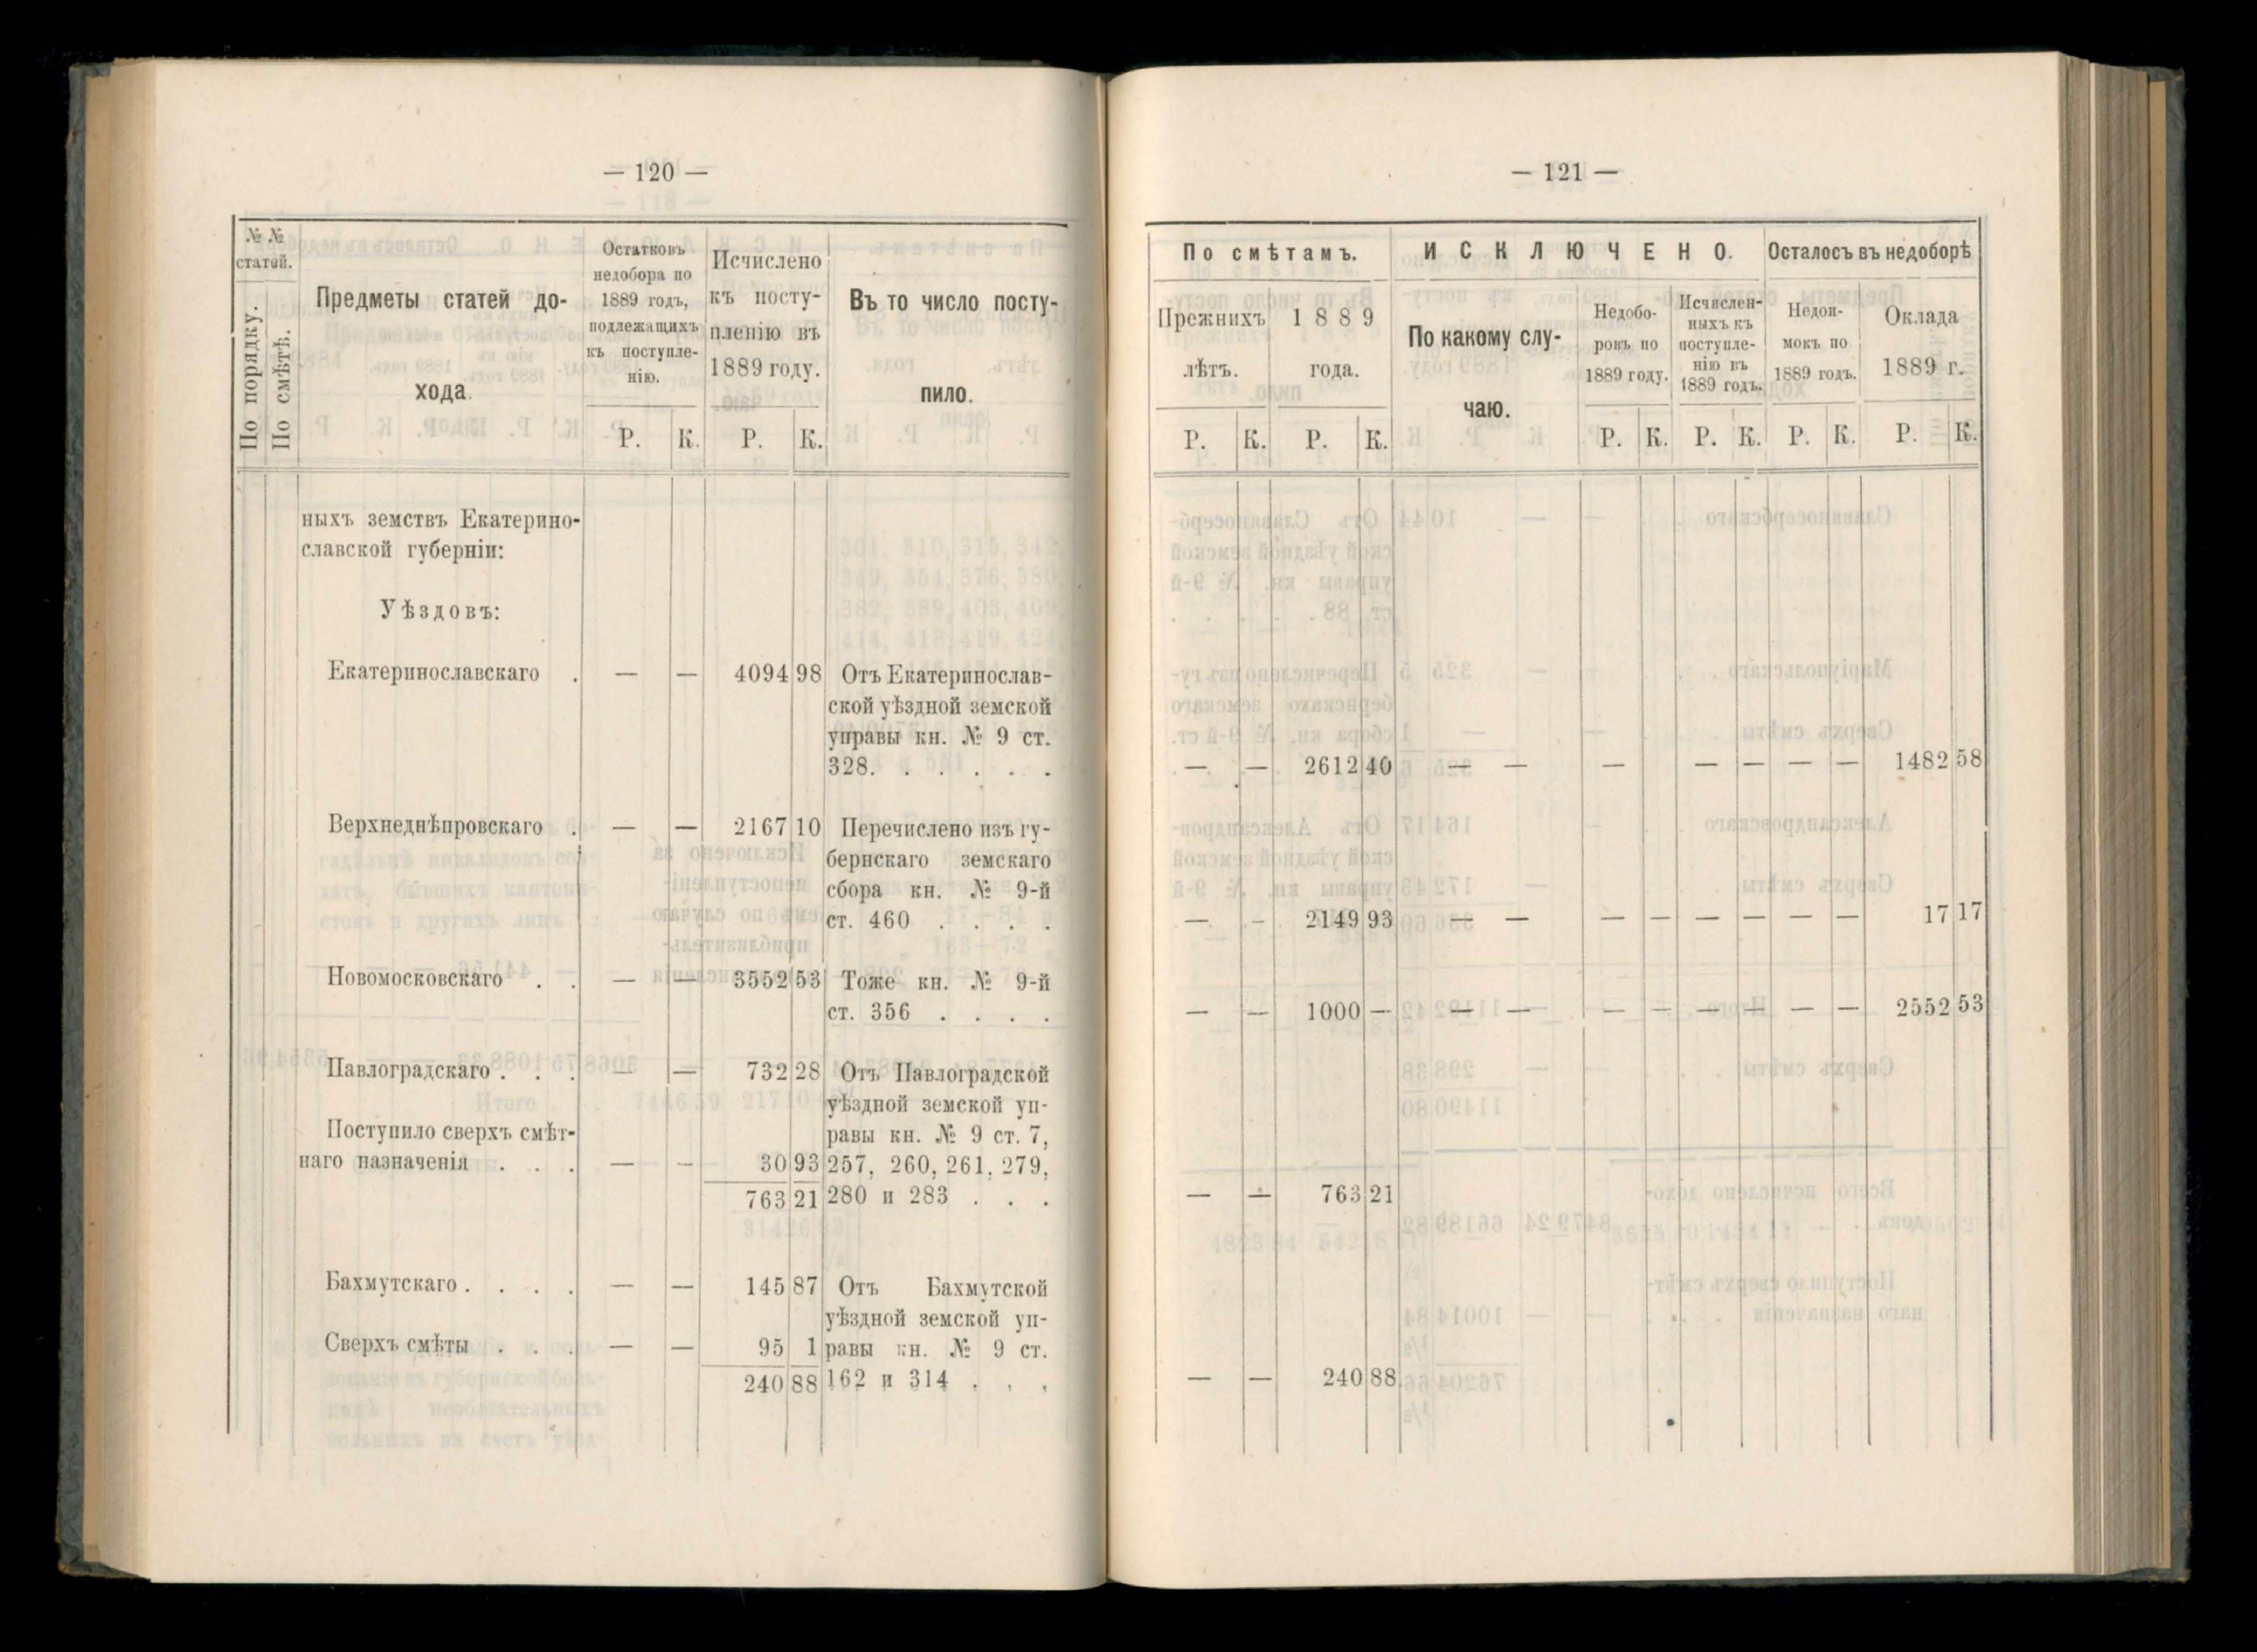 — 120 —
№ №
статей.
По порядку.
По смѣтѣ.
Предметы статей до-
хода.
Остатковъ
недобора по
1889 годъ,
подлежащихъ
къ поступле-
нію.
Исчислено
къ посту-
пленію въ
1889 году.
Въ то число посту-
пило.
Р. К. Р. К.
ныхъ земствъ Екатерино-
славской губерніи:
Уѣздовъ:
Екатеринославскаго . — — 4094 98 Отъ Екатеринослав-
ской уѣздной земской
управы кн. № 9 ст.
328. . . . . .
Верхнеднѣпровскаго . — — 2167 10 Перечислено изъ гу-
бернскаго земскаго
сбора кн. № 9-й
ст. 460 . . . .
Новомосковскаго . . — — 3552 53 Тоже кн. № 9-й
ст. 356 . . . .
Павлоградскаго . . . — — 732 28 Отъ Павлоградской
уѣздной земской уп-
Поступило сверхъ смѣт- равы кн. № 9 ст. 7,
наго назначенія . . . — — 30 93 257, 260, 261, 279,
763 21 280 и 283 . . .
Бахмутскаго . . . . — — 145 87 Отъ Бахмутской
уѣздной земской уп-
Сверхъ смѣты . . . — — 95 1 равы кн. № 9 ст.
240 88 162 и 314 . . .
— 121 —
По смѣтамъ.
ИСКЛЮЧЕНО.
Осталось въ недоборѣ
Прежнихъ
лѣтъ.
1889
года.
По какому слу-
чаю.
Недобо-
ровъ по
1889 году.
Исчислен-
ныхъ къ
поступле-
нію въ
1889 годъ.
Недои-
мокъ по
1889 годъ.
Оклада
1889 г.
Р. К. Р. К. Р. К. Р. К. Р. К. Р. К.
— — 2612 40 — — — — — — — 1482 58
— — 2149 93 — — — — — — — — 17 17
— — 1000 — — — — — — — — — 2552 53
— — 763 21
— — 240 88